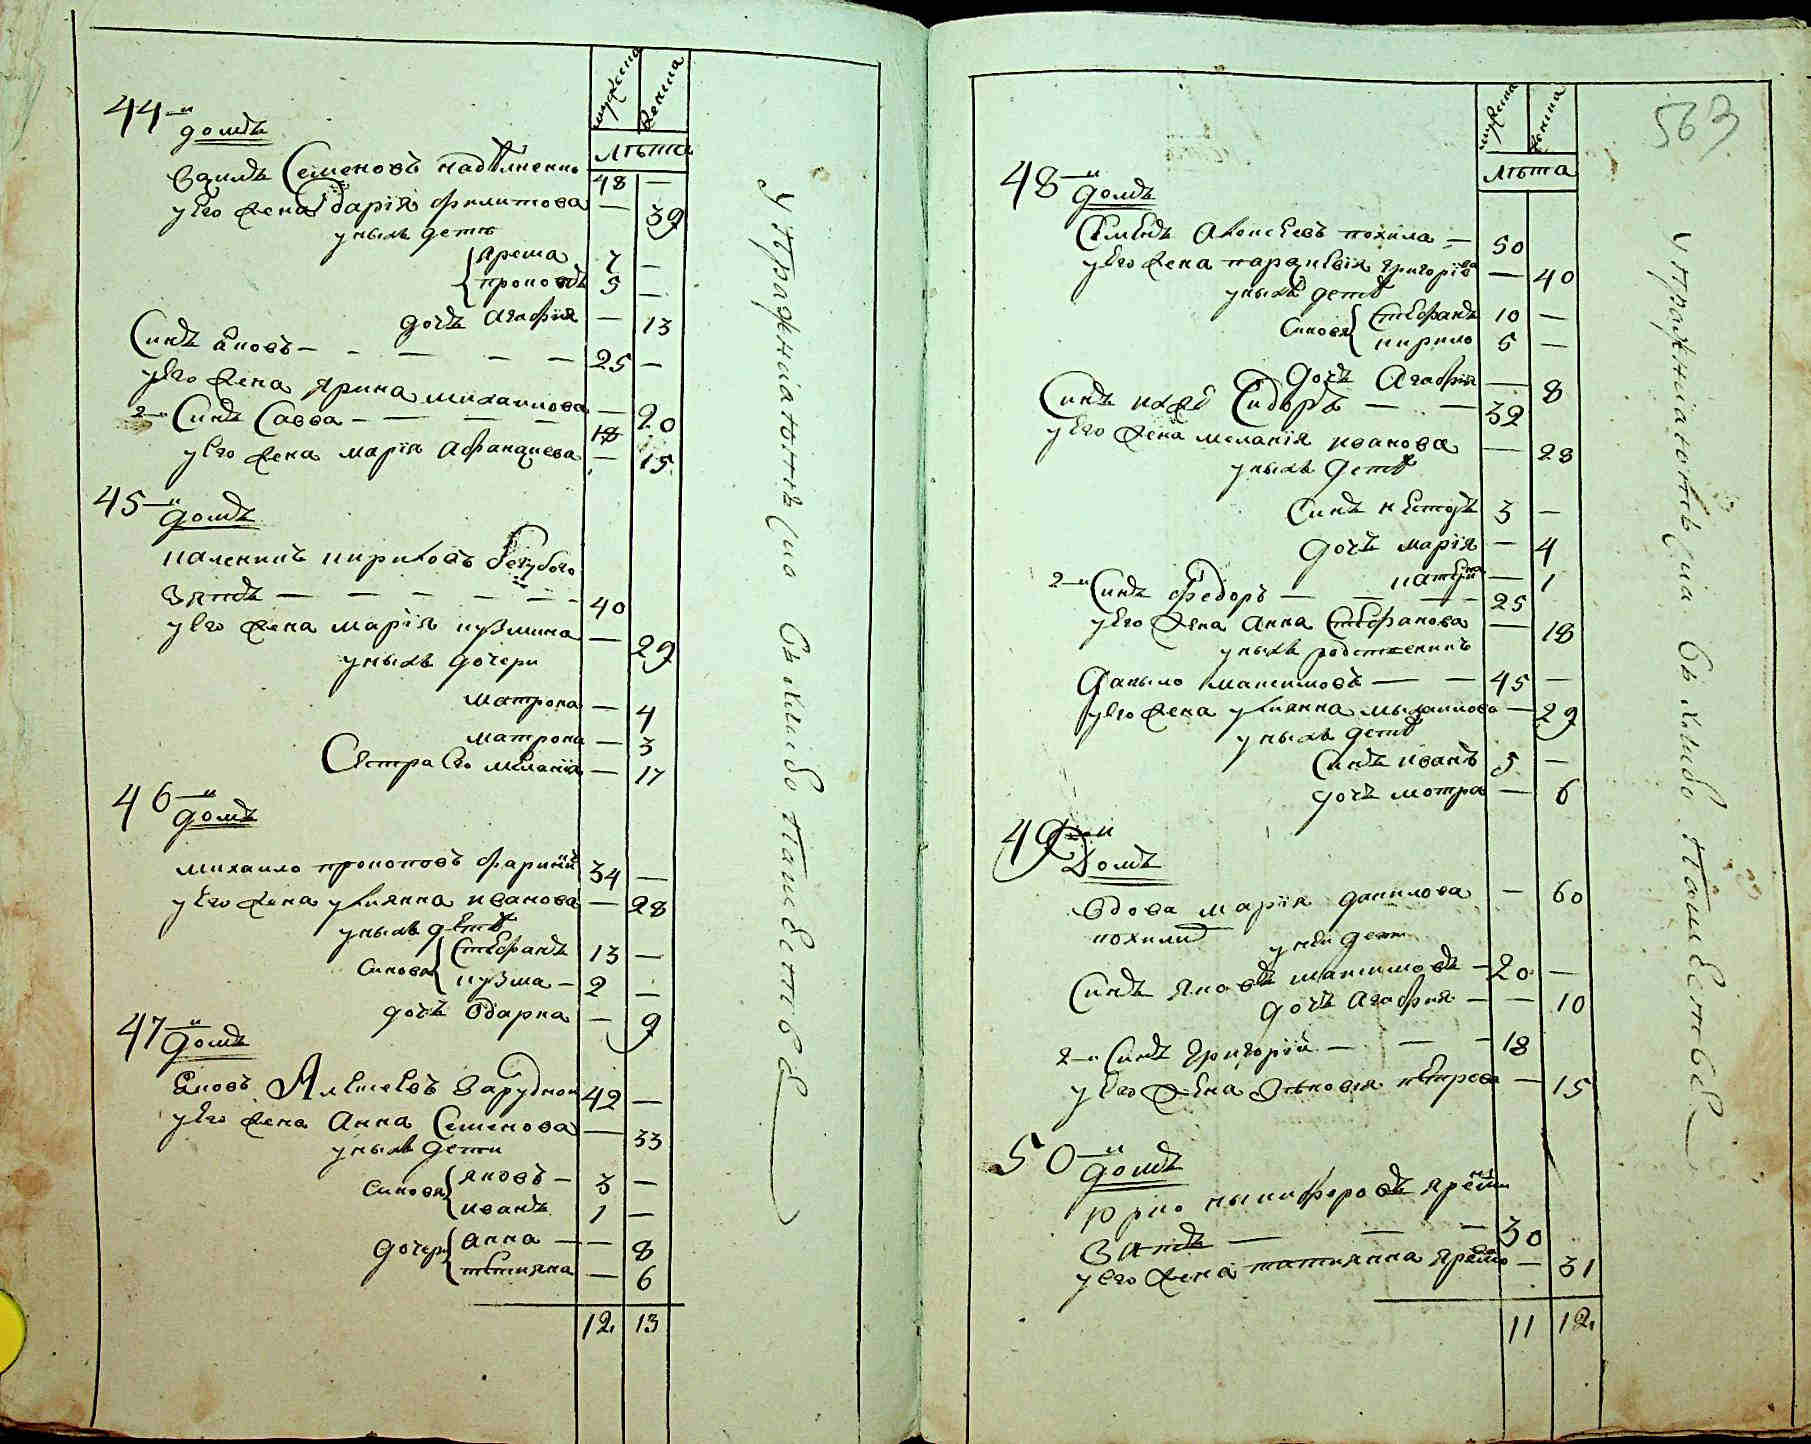 мужеска женска
лѣта
44-й домъ
Семеновъ 48 —
у его жена Дарія Филипова — 39
у нихъ дети
Ярема 7 —
Прокопъ 5 —
дочъ Агафія — 13
Синъ Яковъ — 25 —
у его жена Ярина Михаилова — 20
2-й Синъ Савва — 18
у его жена Марія Афанасиева — 15
45-й домъ
Кириловъ
Зять — 40
у его жена Марія Кузмина — 29
у нихъ дочери
Матрона — 4
Матрона — 3
Сестра Его Меланія — 17
46-й домъ
Михаило Прокоповъ 34 —
у его жена Улиянна Иванова — 28
у нихъ дети
Синовя Стефанъ 13 —
Кузма — 2 —
дочъ Одарка — 9
47-й домъ
Яковъ Алексеевъ Зарудной 42 —
у его жена Анна Семенова — 33
у нихъ дети
Синовя Яковъ — 3 —
Иванъ 1 —
дочери Анна — 8
Тетияна — 6
12 13
упражниаютъ Сиа въ хлибо пашествѣ
563
мужеска женска
лѣта
48-й домъ
Семенъ Алексеевъ Похила — 50
у его жена Параскевія Григоріева — 40
у нихъ дети
Синовя Стефанъ 10 —
Кирило 5 —
дочъ Агафія — 8
Синъ ихже Сидоръ — 32
у его жена Меланія Иванова — 28
у нихъ дети
Синъ Несторъ 3 —
дочъ Марія — 4
Катерина — 1
2-й Синъ Федоръ — 25
у его жена Анна Стефанова — 18
у нихъ родственникъ
Данило Максимовъ — 45 —
у его жена Улиянна Михаилова — 29
у нихъ дети
Синъ Иванъ 5 —
дочъ Мотра — 6
49-й Домъ
Вдова Марія Данилова — 60
Похили у неи дети
Синъ Яковъ Максимовъ — 20 —
дочъ Агафия — 10
2-й Синъ Григорій — 18
у его жена Зѣновія Петрова — 15
50-й домъ
Юрко Никифоровъ
Зять — 30
у его жена Татиянна — 31
11 12
упражниаютъ Сиа въ хлибо пашествѣ